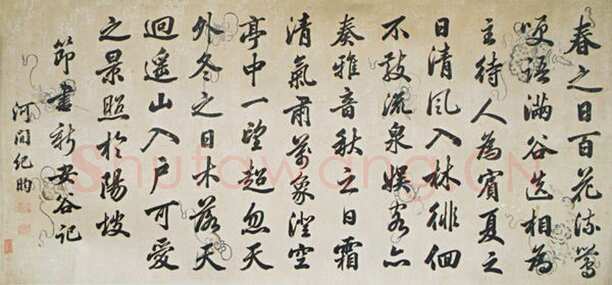 春之日百花流鶯
哽語滿谷迭相為
主待人為賓夏之
日清風入林徘徊
不散流泉娛客亦
奏雅音秋之日霜
清氣肅萬象澄空
亭中一望超忽天
外冬之日木落天
迥遙山入戶可愛
之景照於陽坡
節書新安谷記
河間紀昀
Shufawang.CN